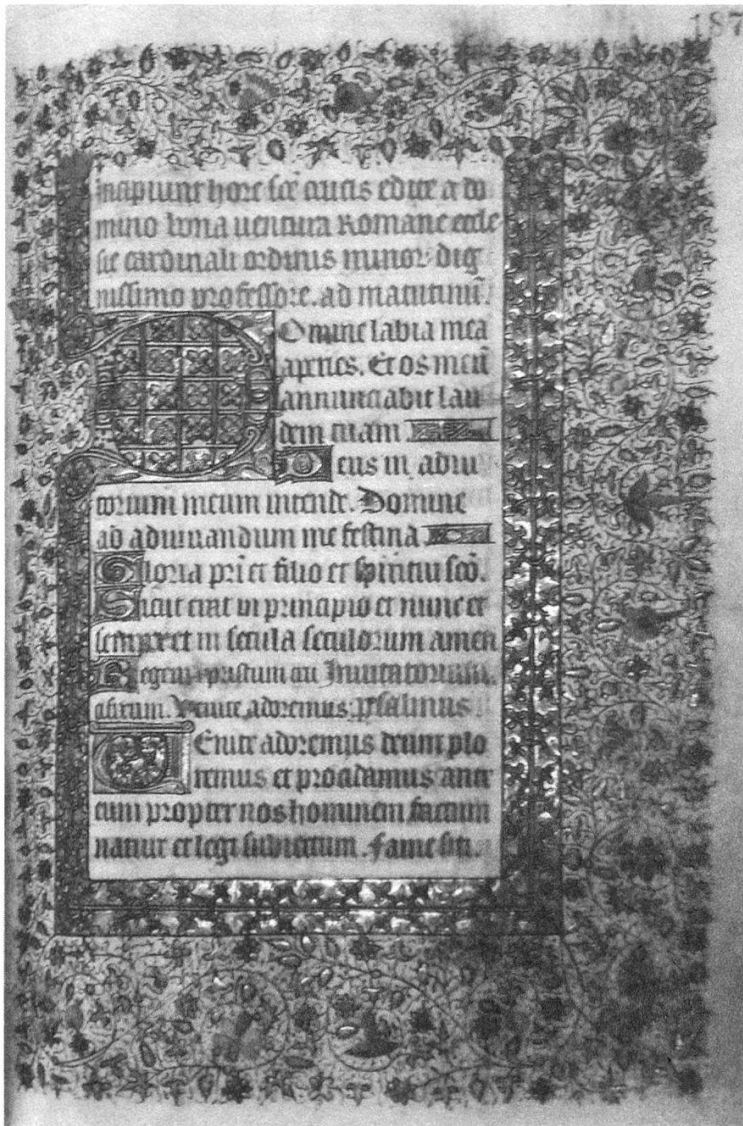 187
Incipiunt hore scē crucis edite a do
mino bona uentura Romane eccle
sie cardinali ordinis minor dig
nissimo professore. ad matutinū.
Domine labia mea
aperies. Et os meū
annunciabit lau
dem tuam
Deus in adiu
torium meum intende. Domine
ad adiuuandum me festina
Gloria pri et filio et spiritui scō.
Sicut erat in principio et nunc et
semper et in secula seculorum amen
Regem xpristum Inuitatorium.
Venite adoremus. psalmus
Uenite adoremus deum plo
remus et procidamus ante
eum propter nos hominem factum
natum et legi subiectum. fame siti.